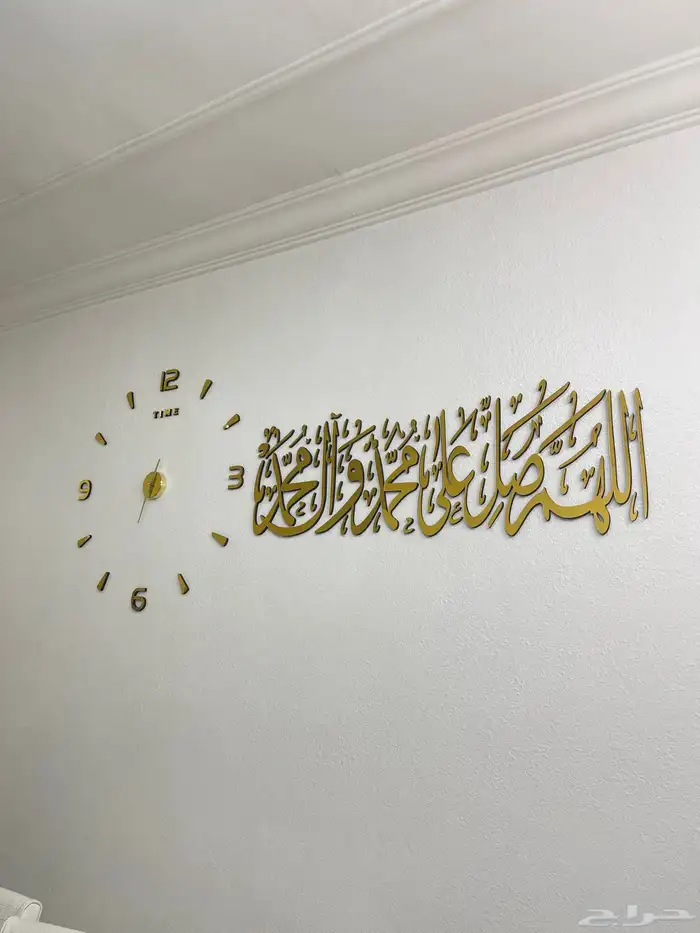 12
TIME
9
3
6
اللَّهُمَّ صَلِّ عَلَى مُحَمَّدٍ وَآلِ مُحَمَّدٍ
حراج